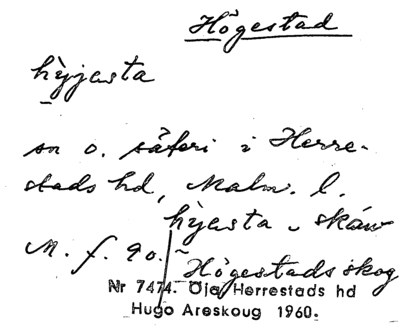 Högestad
hỳjesta
sn o. säteri i Herre-
stads hd, Malm. l.
hỳjesta ~ skåw
M. f. 90. ~ Högestads skog
Nr 7474. Öja, Herrestads hd
Hugo Areskoug 1960.